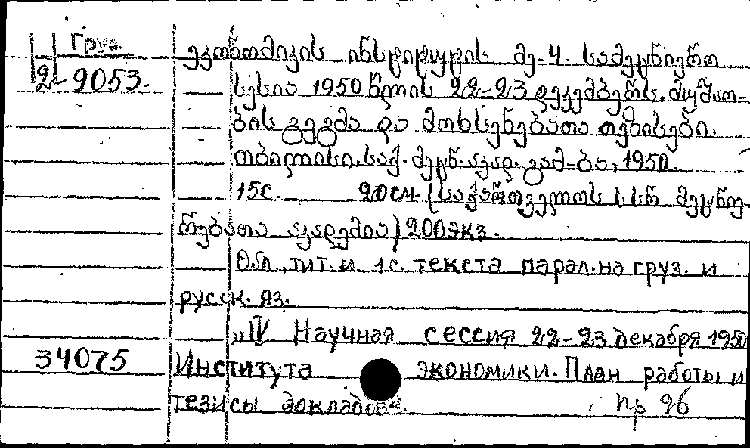 Груз.
2-9053.
ეკონომიკის ინსტიტუტის მე-4. სამეცნიერო
სესია 1950 წლის 22-23 დეკემბერს. მუშაო-
ბის გეგმა და მოხსენებათა თეზისები.
თბილისი. საქ. მეცნ. აკად. გამ-ბა, 1950.
15с. 20см. (საქართველოს სსრ მეცნიე-
რებათა აკადემია) 200экз.
Обл., тит. и 1с. текста парал. на груз. и
русск. яз.
„IV Научная сессия 22-23 декабря 1950
34075 Института экономики. План работы и
тезисы докладов".
пр 96